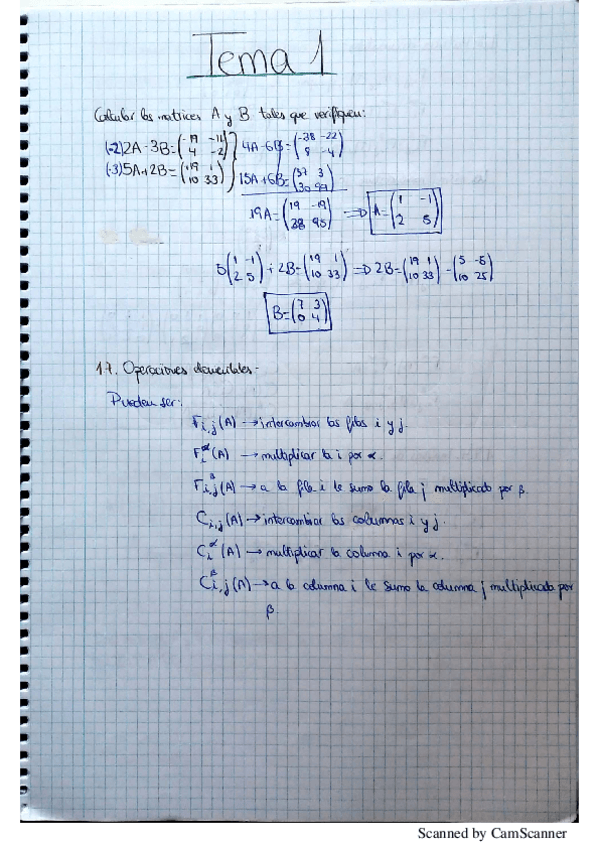 Tema 1
Calcular las matrices A y B tales que verifiquen:
(-2) 2A-3B=(-19 -11 / 4 -2) } 4A-6B=(-38 -22 / 8 -4)
(-3) 5A+2B=(19 1 / 10 33) } 15A+6B=(57 3 / 30 99)
19A=(19 -19 / 38 95) => A=(1 -1 / 2 5)
5(1 -1 / 2 5)+2B=(19 1 / 10 33) => 2B=(19 1 / 10 33)-(5 -5 / 10 25)
B=(7 3 / 0 4)
1.7. Operaciones elementales.-
Pueden ser:
Fi,j(A) → intercambiar las filas i y j.
Fi^α(A) → multiplicar la i por α.
Fi,j^β(A) → a la fila i le sumo la fila j multiplicado por β.
Ci,j(A) → intercambiar las columnas i y j.
Ci^α(A) → multiplicar la columna i por α.
Ci,j^β(A) → a la columna i le sumo la columna j multiplicada por
β.
Scanned by CamScanner